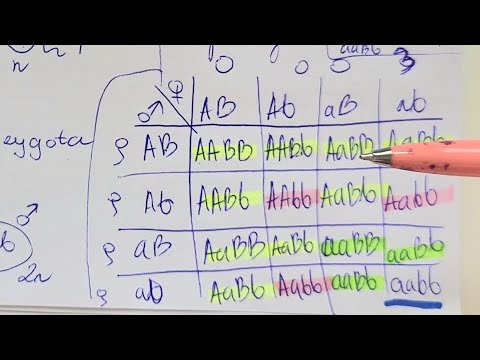 n
aaBb
3
♀
♂ AB Ab aB ab
zygota
♀ AB AABB AABb AaBB AaBb
♀ Ab AABb AAbb AaBb Aabb
♂
♀ aB AaBB AaBb aaBB aaBb
b
2n
♀ ab AaBb Aabb aaBb aabb